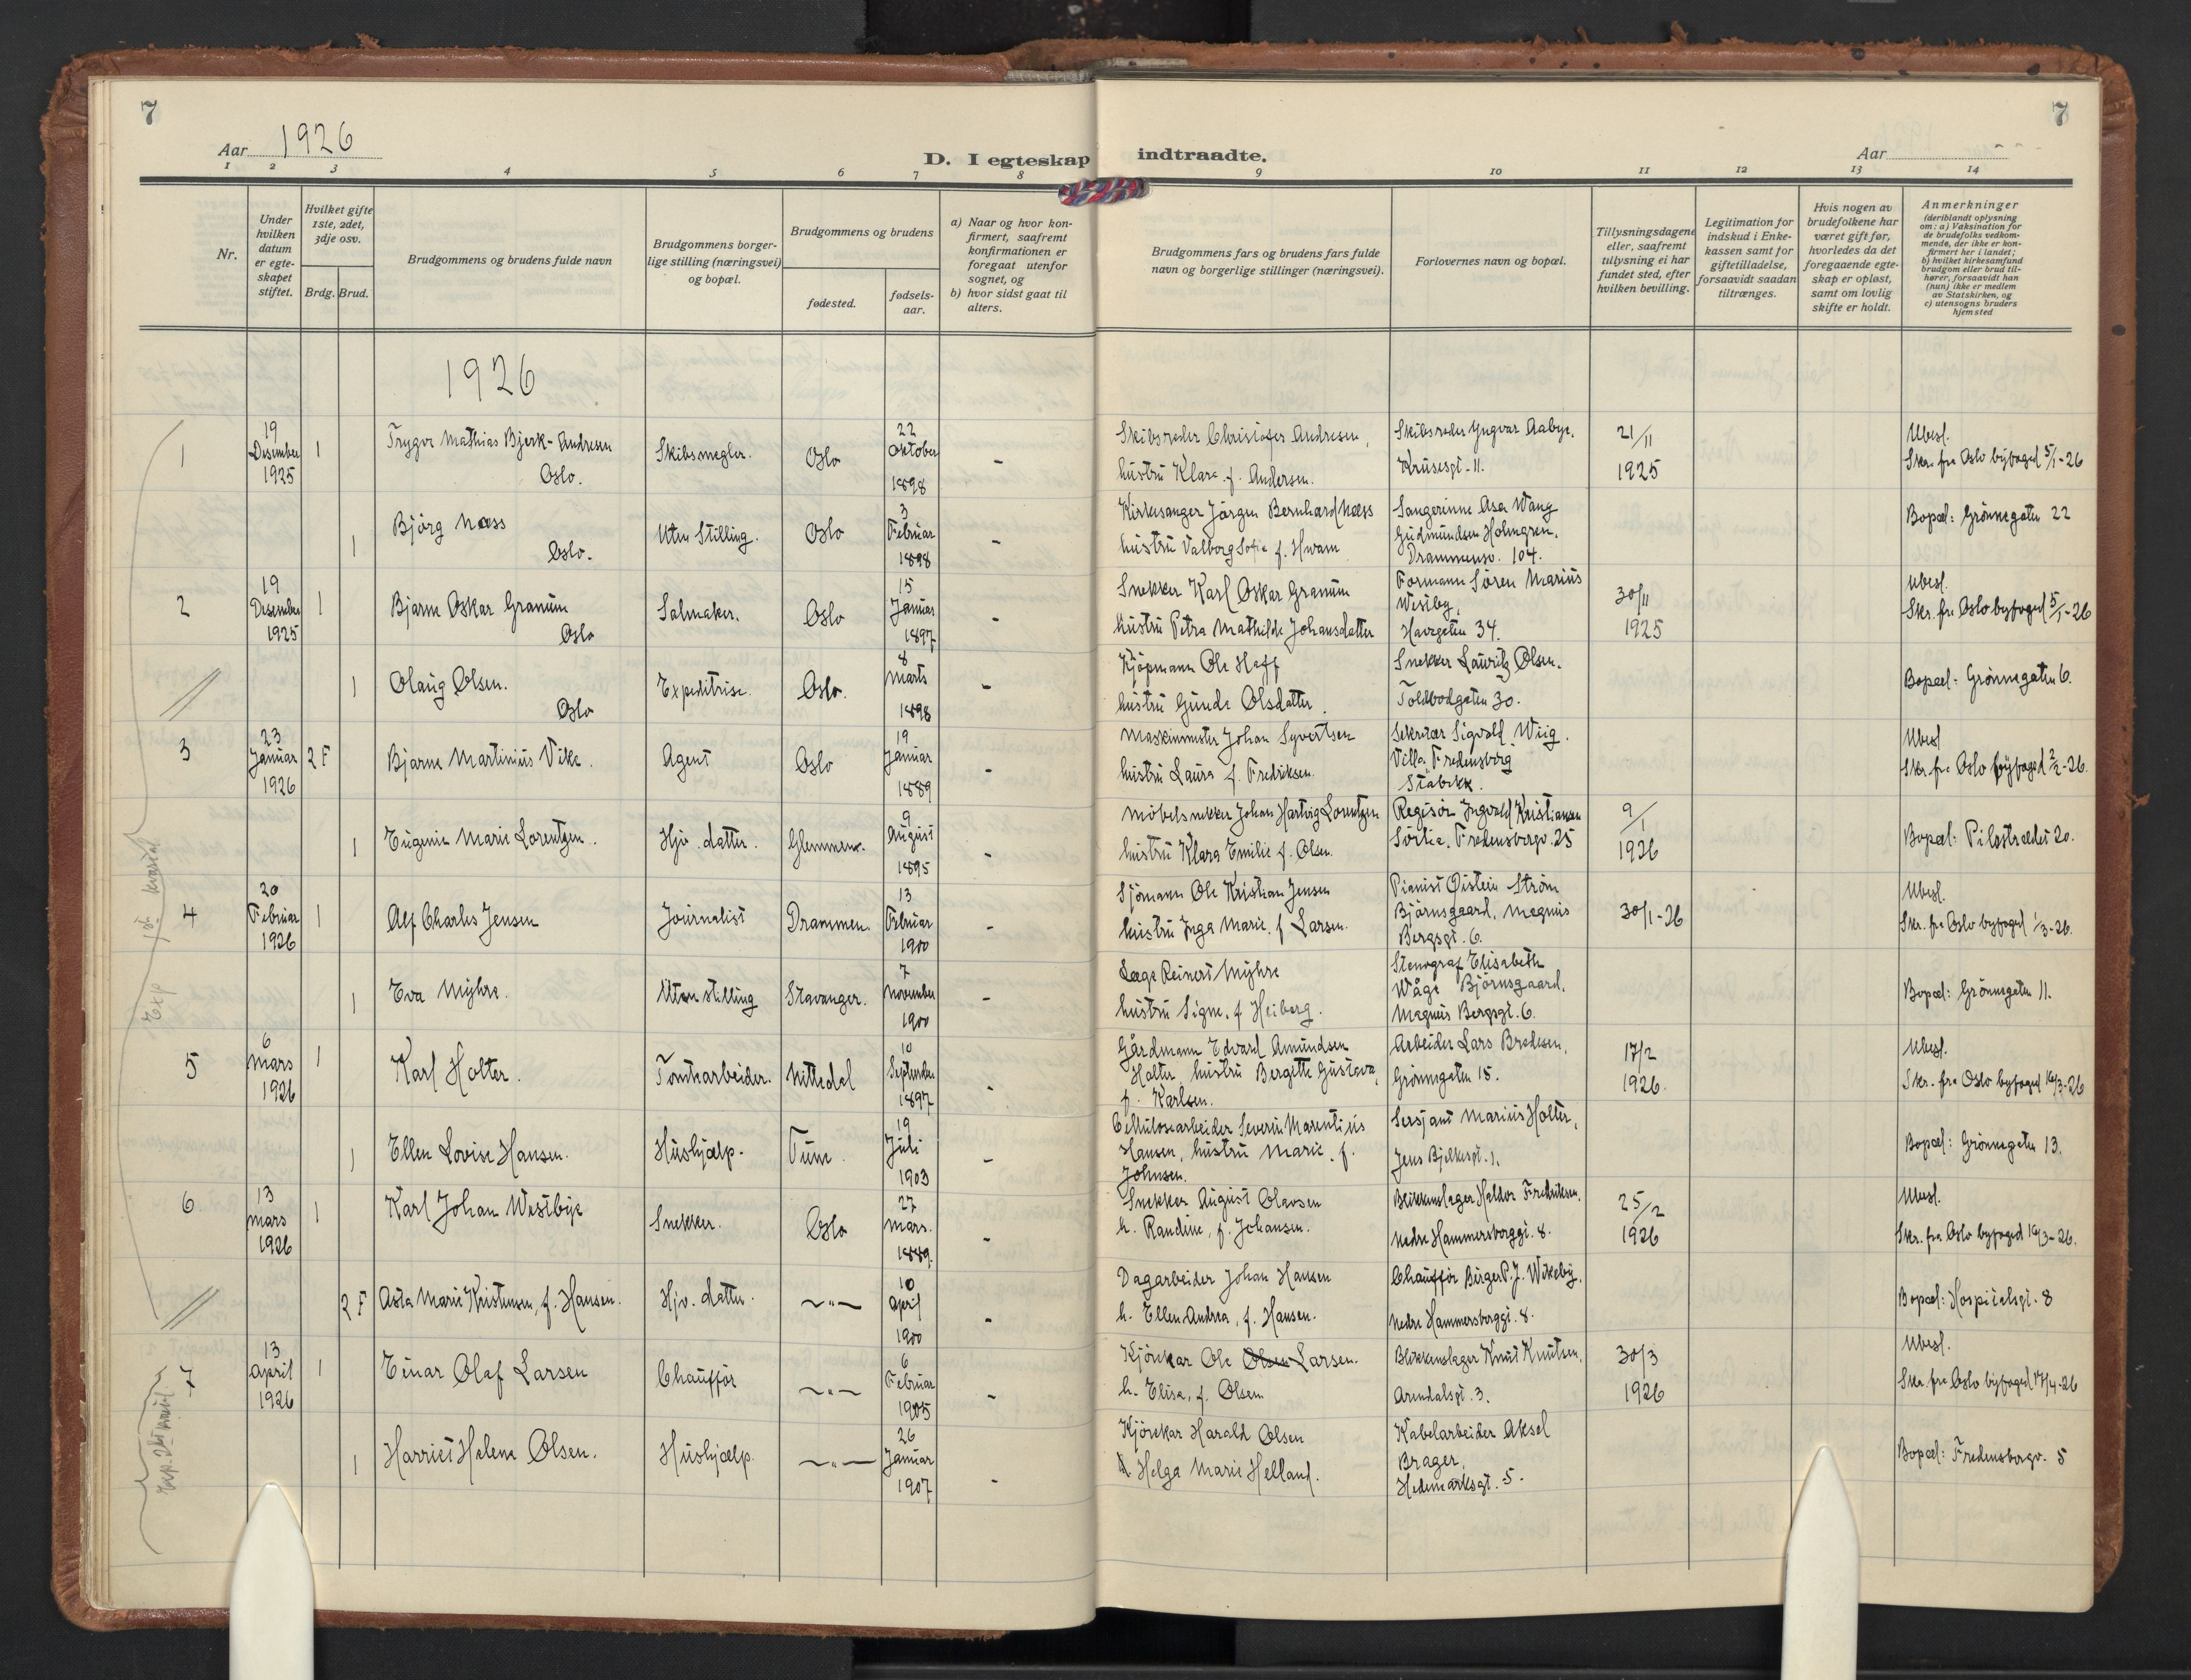 7
7
Aar 1926
D. I egteskap indtraadte.
Aar
1 2 3 4 5 6 7 8 9 10 11 12 13 14
Nr.
Under hvilken datum er egte-skapet stiftet.
Hvilket gifte 1ste, 2det, 3dje osv.
Brdg. Brud.
Brudgommens og brudens fulde navn
Brudgommens borger-lige stilling (næringsvei) og bopæl.
Brudgommens og brudens
fødested.
fødsels-aar.
a) Naar og hvor kon-firmert, saafremt konfirmationen er foregaat utenfor sognet, og
b) hvor sidst gaat til alters.
Brudgommens fars og brudens fars fulde navn og borgerlige stillinger (næringsvei).
Forlovernes navn og bopæl.
Tillysningsdagene eller, saafremt tillysning ei har fundet sted, efter hvilken bevilling.
Legitimation for indskud i Enke-kassen samt for giftetilladelse, forsaavidt saadan tiltrænges.
Hvis nogen av brudefolkene har været gift før, hvorledes da det foregaaende egte-skap er opløst, samt om lovlig skifte er holdt.
Anmerkninger
(deriblandt oplysning om: a) Vaksination for de brudefolks vedkom-mende, der ikke er kon-firmert her i landet; b) hvilket kirkesamfund brudgom eller brud til-hører, forsaavidt han (hun) ikke er medlem av Statskirken, og c) utensogns bruders hjemsted
1926
1
19 Desember 1925
1
Trygve Mathias Bjerk-Andresen
Oslo.
Skibsmegler.
Oslo
22 Oktober 1898
-
Skibsreder Christofer Andresen,
hustru Klara f. Andersen.
Skibsreder Yngvar Aabye.
Krusesgt. 11.
21/11 1925
Ubesl.
Skr. fra Oslo byfoged 5/1-26
1
Bjørg Næss
Oslo.
Uten Stilling.
Oslo
3 Februar 1898
-
Kirkesanger Jørgen Bernhard Næss
hustru Valborg Sofie f. Hwam
Sangerinne Asa Wang
Gudmundsen Holmgren.
Drammensv. 104.
Bopæl: Grønnegaten 22
2
19 Desember 1925
1
Bjarne Oskar Granum
Oslo
Salmaker.
Oslo
15 Januar 1897
-
Snekker Karl Oskar Granum
hustru Petra Mathilde Johansdatter
Formann Søren Marius
Westby,
34.
30/11 1925
Ubesl.
Skr. fra Oslo byfoged 5/1-26
1
Olaug Olsen.
Oslo
Expeditrise.
Oslo.
8 Marts 1898
-
Kjøpmann Ole Hoff
hustru Gunda Olsdatter.
Snekker Lauritz Olsen.
Toldbodgaten 30.
Bopæl: Grønnegaten 6.
3
23 Januar 1926
2 F
Bjarne Martinius Vike.
Agent
Oslo
19 Januar 1889
-
Maskinmester Johan Syvertsen
hustru Laura f. Fredriksen.
Sekretær Sigvald Wiig.
Villa Fredensborg
Stabekk.
Ubesl
Skr. fra Oslo byfoged 2/2-26.
1
Eugenie Marie Lorentzen.
Hjv. datter.
Glemmen.
9 August 1895
-
Møbelsnekker Johan Hartvig Lorentzen
hustru Klara Emilie f. Olsen.
Regisør Ingvald Kristiansen
Sørlie. Fredensborgv. 25
9/1 1926
Bopæl: Pilestrædet 20.
4
20 Februar 1926
1
Alf Charles Jensen
Journalist
Drammen.
13 Februar 1900
-
Sjømann Ole Kristian Jensen
hustru Inga Marie. f Larsen.
Pianist Øistein Strøm
Bjørnsgaard, Magnus
Bergsgt. 6.
30/1-26
Ubesl.
Skr. fra Oslo byfoged 1/3-26.
1
Eva Myhre.
Uten stilling
Stavanger.
7 November 1900
-
Læge Reinert Myhre
hustru Signe. f Heiberg.
Stenograf Elisabeth
Wåge Bjørnsgaard,
Magnus Bergsgt. 6.
Bopæl: Grønnegaten 11.
5
6 Mars 1926
1
Karl Holter.
Tomtearbeider.
Nittedal
10 September 1897
-
Gårdmann Edvard Amundsen
Holter, hustru Bergitte Gustava,
f. Karlsen.
Arbeider Lars Bredesen,
Grønnegaten 15.
17/2 1926.
Ubesl.
Skr. fra Oslo byfoged 16/3-26
1
Ellen Lovise Hansen.
Hushjælp.
Tune.
19 Juli 1903
-
Cellulosearbeider Severin Marentius
Hansen, hustru Marie. f.
Johnsen.
Sersjant Marius Holter,
Jens Bjelkesgt. 1.
Bopæl: Grønnegaten 13.
6
13 Mars 1926
1
Karl Johan Westbye
Snekker.
Oslo
27 Mars. 1889.
-
Snekker August Olavsen
h. Randine, f. Johansen.
Blikkenslager Haldor Fredriksen.
Nedre Hammersborggt. 8.
25/2 1926
Ubesl.
Skr. fra Oslo byfoged 16/3-26.
2 F
Asta Marie Kristensen, f. Hansen.
Hjv. datter.
~"~
10 April 1900
-
Dagarbeider Johan Hansen
h. Ellen Andrea, f. Hansen.
Chauffør Birger P. J. Wikeby,
Nedre Hammersborggt. 8.
Bopæl: Hospitalsgt. 8
7
13 April 1926
1
Einar Olaf Larsen
Chauffør
~"~
6 Februar 1905
-
Kjørekar Ole Olsen Larsen.
h. Elise, f. Olsen
Blikkenslager Knut Knutsen,
Arendalsgt. 3.
30/3 1926
Ubesl.
Skr. fra Oslo byfoged 17/4-26
1
Harriet Helene Olsen.
Hushjælp.
~"~
26 Januar 1907
-
Kjørekar Harald Olsen
h Helga Marie Helland.
Kabelarbeider Aksel
Brager,
Hedemarksgt. 5.
Bopæl: Fredensborgv. 5
Exp 1ste kvartal
Exp. 2det kvartal